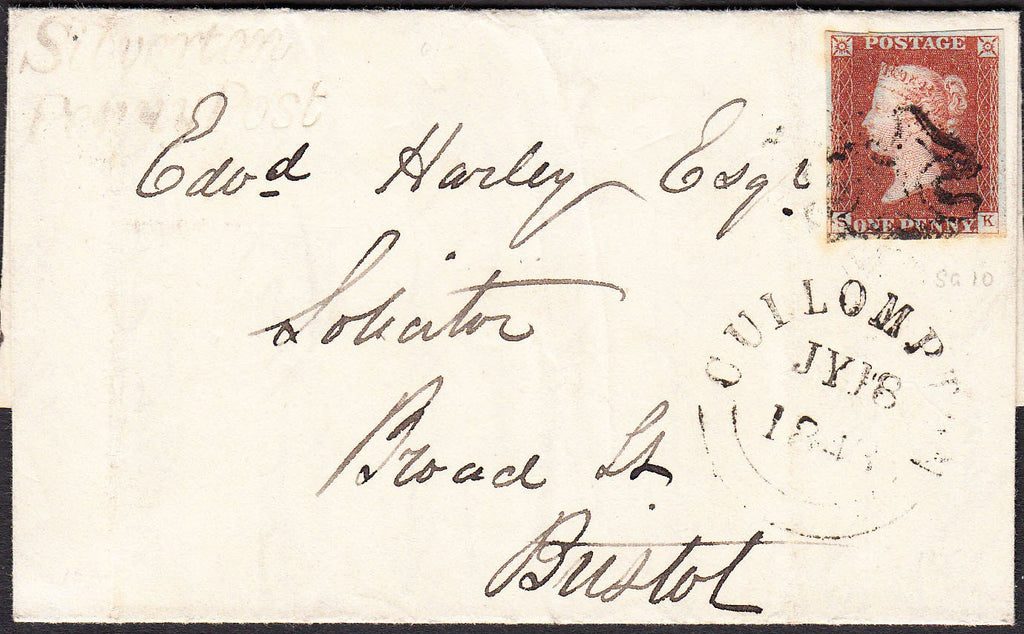 Silverton
Penny Post
POSTAGE
S ONE PENNY K
Edwd Harley Esqr
Solicitor
Broad St
Bristol
SG 10
CULLOMPTON
JY 18